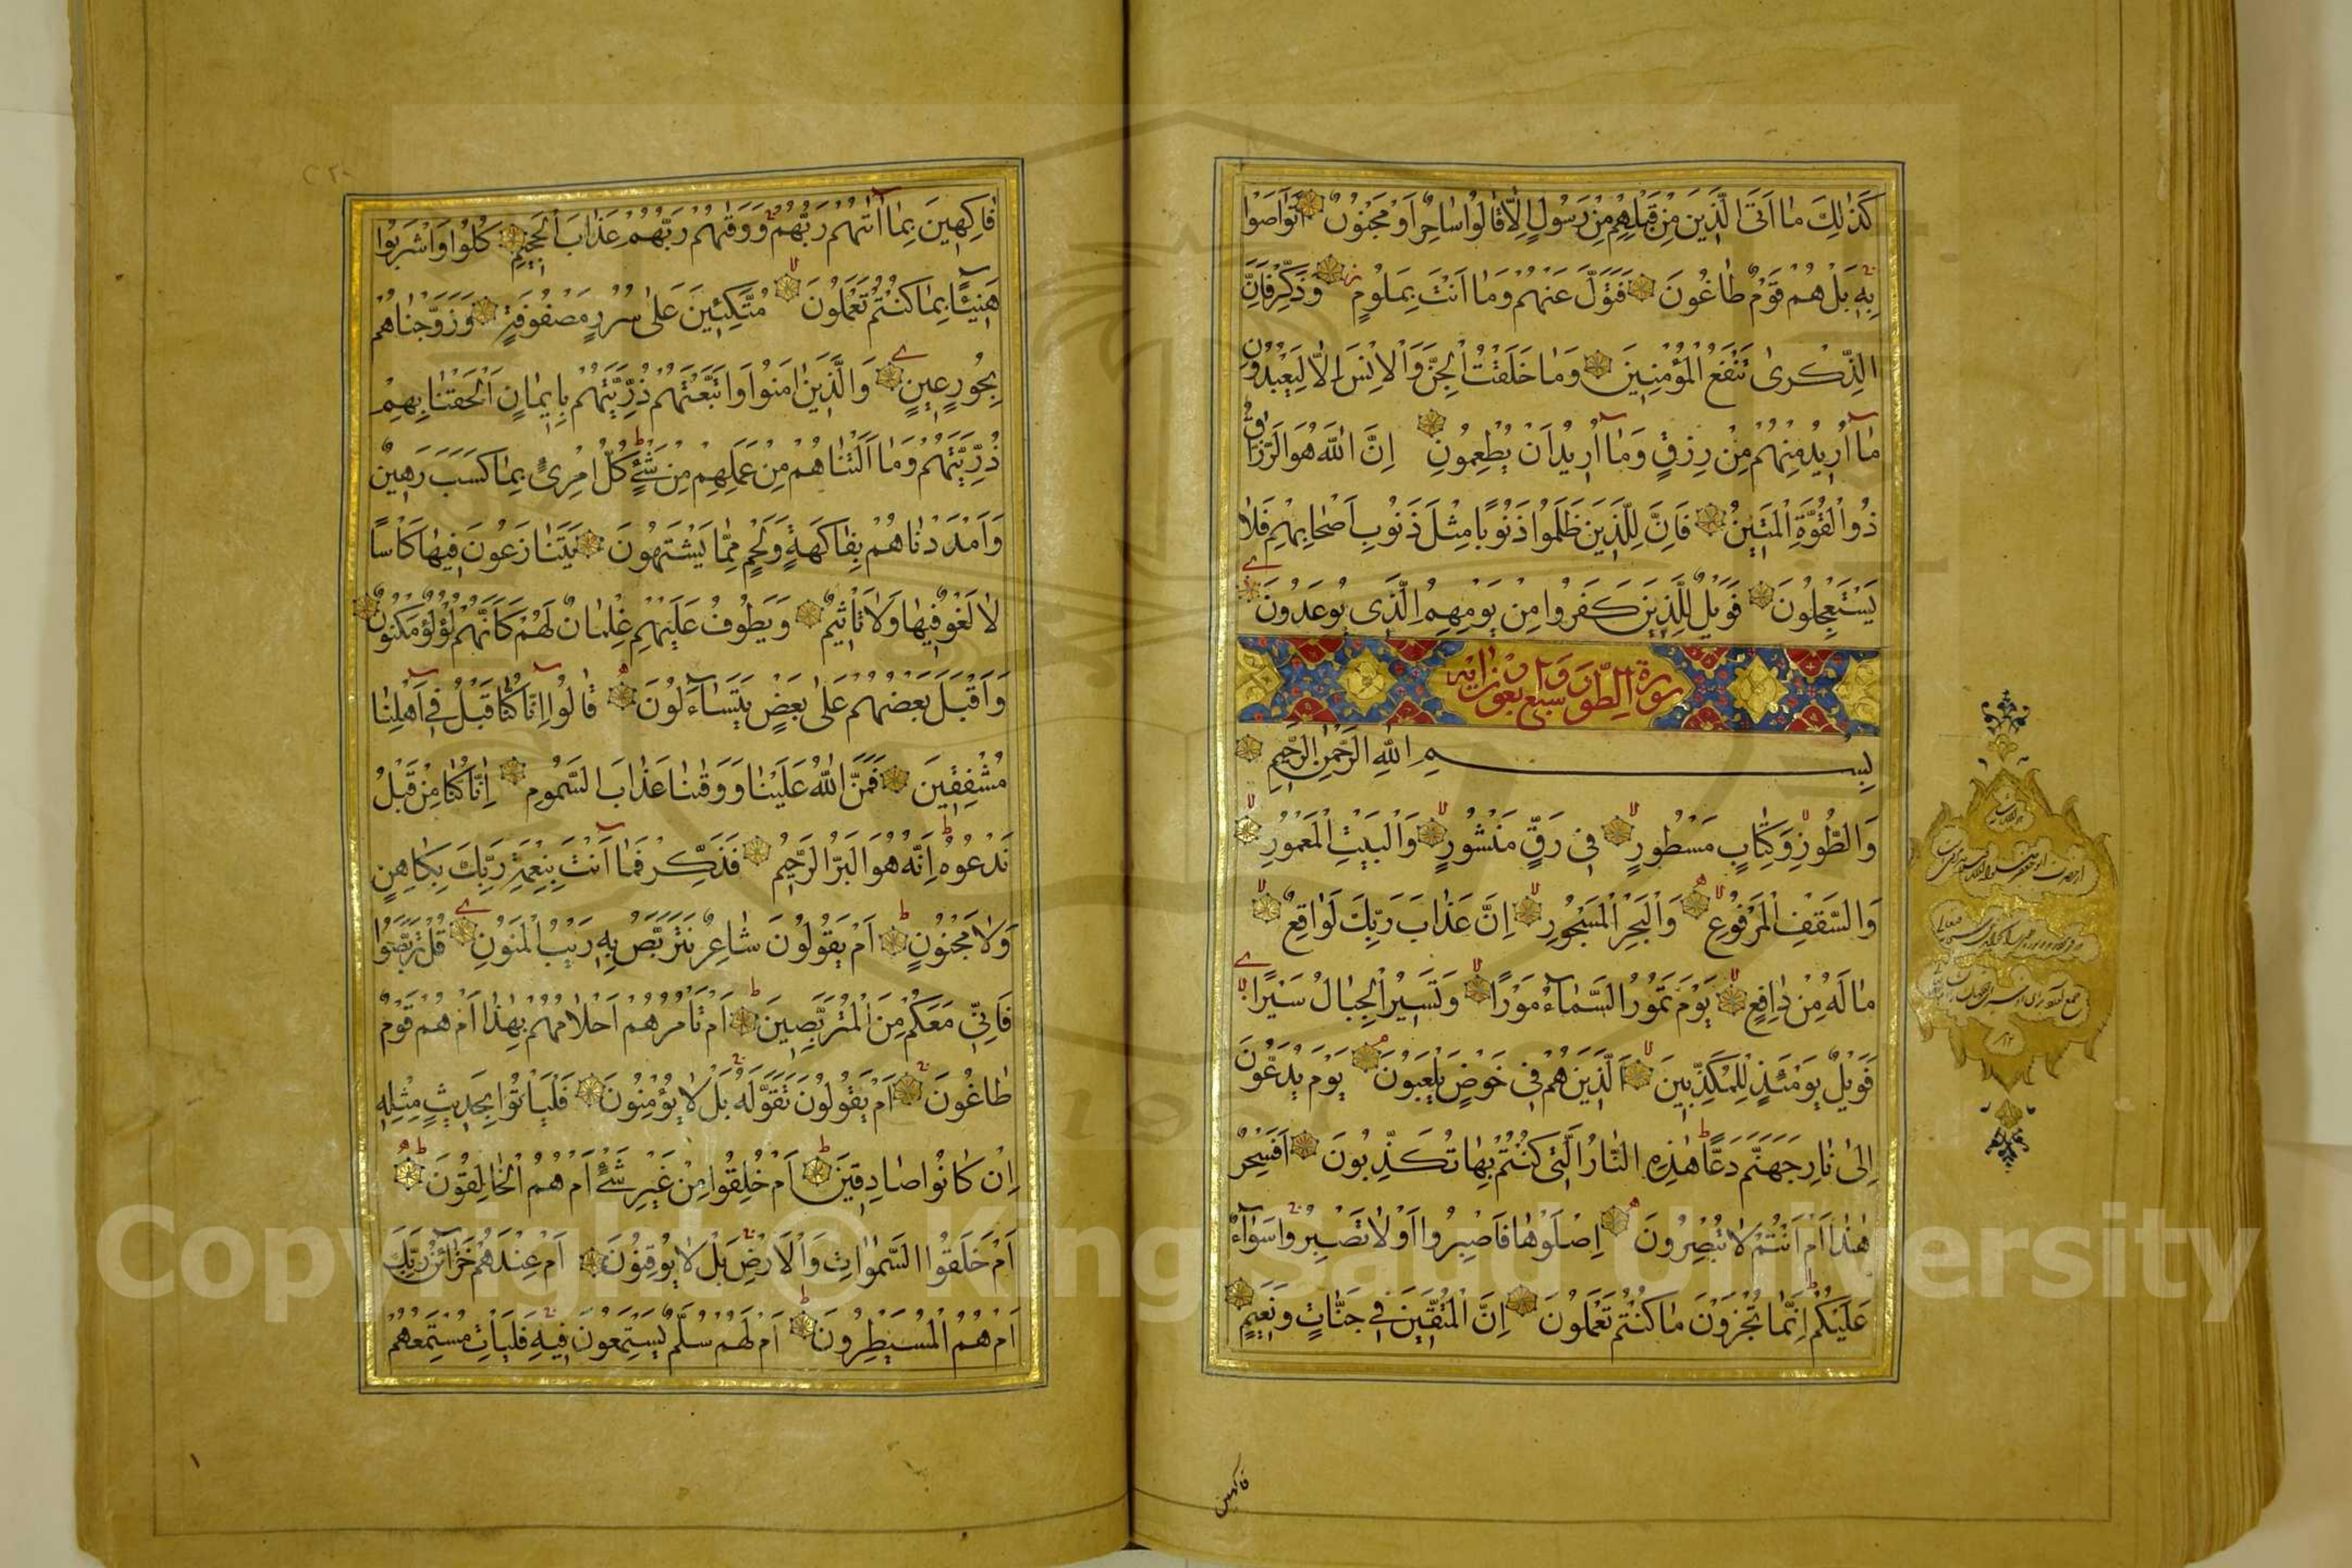 كَذٰلِكَ مٰا اَتَى الَّذِينَ مِنْ قَبْلِهِمْ مِنْ رَسُولٍ اِلّٰا قٰالُوا سٰاحِرٌ اَوْ مَجْنُونٌ اَتَوٰاصَوْا
بِهِ بَلْ هُمْ قَوْمٌ طٰاغُونَ فَتَوَلَّ عَنْهُمْ وَمٰا اَنْتَ بِمَلُومٍ وَذَكِّرْ فَاِنَّ
الذِّكْرىٰ تَنْفَعُ الْمُؤْمِنِينَ وَمٰا خَلَقْتُ الْجِنَّ وَالْاِنْسَ اِلّٰا لِيَعْبُدُونِ
مٰا اُرِيدُ مِنْهُمْ مِنْ رِزْقٍ وَمٰا اُرِيدُ اَنْ يُطْعِمُونِ اِنَّ اللّٰهَ هُوَ الرَّزّٰاقُ
ذُو الْقُوَّةِ الْمَتِينُ فَاِنَّ لِلَّذِينَ ظَلَمُوا ذَنُوبًا مِثْلَ ذَنُوبِ اَصْحٰابِهِمْ فَلٰا
يَسْتَعْجِلُونَ فَوَيْلٌ لِلَّذِينَ كَفَرُوا مِنْ يَوْمِهِمُ الَّذِي يُوعَدُونَ
بِسْمِ اللّٰهِ الرَّحْمٰنِ الرَّحِيمِ
وَالطُّورِ وَكِتٰابٍ مَسْطُورٍ فِي رَقٍّ مَنْشُورٍ وَالْبَيْتِ الْمَعْمُورِ
وَالسَّقْفِ الْمَرْفُوعِ وَالْبَحْرِ الْمَسْجُورِ اِنَّ عَذٰابَ رَبِّكَ لَوٰاقِعٌ
مٰا لَهُ مِنْ دٰافِعٍ يَوْمَ تَمُورُ السَّمٰاءُ مَوْرًا وَتَسِيرُ الْجِبٰالُ سَيْرًا
فَوَيْلٌ يَوْمَئِذٍ لِلْمُكَذِّبِينَ اَلَّذِينَ هُمْ فِي خَوْضٍ يَلْعَبُونَ يَوْمَ يُدَعُّونَ
اِلىٰ نٰارِ جَهَنَّمَ دَعًّا هٰذِهِ النّٰارُ الَّتِي كُنْتُمْ بِهٰا تُكَذِّبُونَ اَفَسِحْرٌ
هٰذٰا اَمْ اَنْتُمْ لٰا تُبْصِرُونَ اِصْلَوْهٰا فَاصْبِرُوا اَوْ لٰا تَصْبِرُوا سَوٰاءٌ
عَلَيْكُمْ اِنَّمٰا تُجْزَوْنَ مٰا كُنْتُمْ تَعْمَلُونَ اِنَّ الْمُتَّقِينَ فِي جَنّٰاتٍ وَنَعِيمٍ
فاكهين
فٰاكِهِينَ بِمٰا اٰتٰهُمْ رَبُّهُمْ وَوَقٰهُمْ رَبُّهُمْ عَذٰابَ الْجَحِيمِ كُلُوا وَاشْرَبُوا
هَنِيئًا بِمٰا كُنْتُمْ تَعْمَلُونَ مُتَّكِئِينَ عَلىٰ سُرُرٍ مَصْفُوفَةٍ وَزَوَّجْنٰاهُمْ
بِحُورٍ عِينٍ وَالَّذِينَ اٰمَنُوا وَاتَّبَعَتْهُمْ ذُرِّيَّتُهُمْ بِاِيمٰانٍ اَلْحَقْنٰا بِهِمْ
ذُرِّيَّتَهُمْ وَمٰا اَلَتْنٰاهُمْ مِنْ عَمَلِهِمْ مِنْ شَيْءٍ كُلُّ امْرِئٍ بِمٰا كَسَبَ رَهِينٌ
وَاَمْدَدْنٰاهُمْ بِفٰاكِهَةٍ وَلَحْمٍ مِمّٰا يَشْتَهُونَ يَتَنٰازَعُونَ فِيهٰا كَاْسًا
لٰا لَغْوٌ فِيهٰا وَلٰا تَاْثِيمٌ وَيَطُوفُ عَلَيْهِمْ غِلْمٰانٌ لَهُمْ كَاَنَّهُمْ لُؤْلُؤٌ مَكْنُونٌ
وَاَقْبَلَ بَعْضُهُمْ عَلىٰ بَعْضٍ يَتَسٰاءَلُونَ قٰالُوا اِنّٰا كُنّٰا قَبْلُ فِي اَهْلِنٰا
مُشْفِقِينَ فَمَنَّ اللّٰهُ عَلَيْنٰا وَوَقٰنٰا عَذٰابَ السَّمُومِ اِنّٰا كُنّٰا مِنْ قَبْلُ
نَدْعُوهُ اِنَّهُ هُوَ الْبَرُّ الرَّحِيمُ فَذَكِّرْ فَمٰا اَنْتَ بِنِعْمَتِ رَبِّكَ بِكٰاهِنٍ
وَلٰا مَجْنُونٍ اَمْ يَقُولُونَ شٰاعِرٌ نَتَرَبَّصُ بِهِ رَيْبَ الْمَنُونِ قُلْ تَرَبَّصُوا
فَاِنِّي مَعَكُمْ مِنَ الْمُتَرَبِّصِينَ اَمْ تَاْمُرُهُمْ اَحْلٰامُهُمْ بِهٰذٰا اَمْ هُمْ قَوْمٌ
طٰاغُونَ اَمْ يَقُولُونَ تَقَوَّلَهُ بَلْ لٰا يُؤْمِنُونَ فَلْيَاْتُوا بِحَدِيثٍ مِثْلِهِ
اِنْ كٰانُوا صٰادِقِينَ اَمْ خُلِقُوا مِنْ غَيْرِ شَيْءٍ اَمْ هُمُ الْخٰالِقُونَ
اَمْ خَلَقُوا السَّمٰوٰاتِ وَالْاَرْضَ بَلْ لٰا يُوقِنُونَ اَمْ عِنْدَهُمْ خَزٰائِنُ رَبِّكَ
اَمْ هُمُ الْمُسَيْطِرُونَ اَمْ لَهُمْ سُلَّمٌ يَسْتَمِعُونَ فِيهِ فَلْيَاْتِ مُسْتَمِعُهُمْ
Copyright © King Saud University